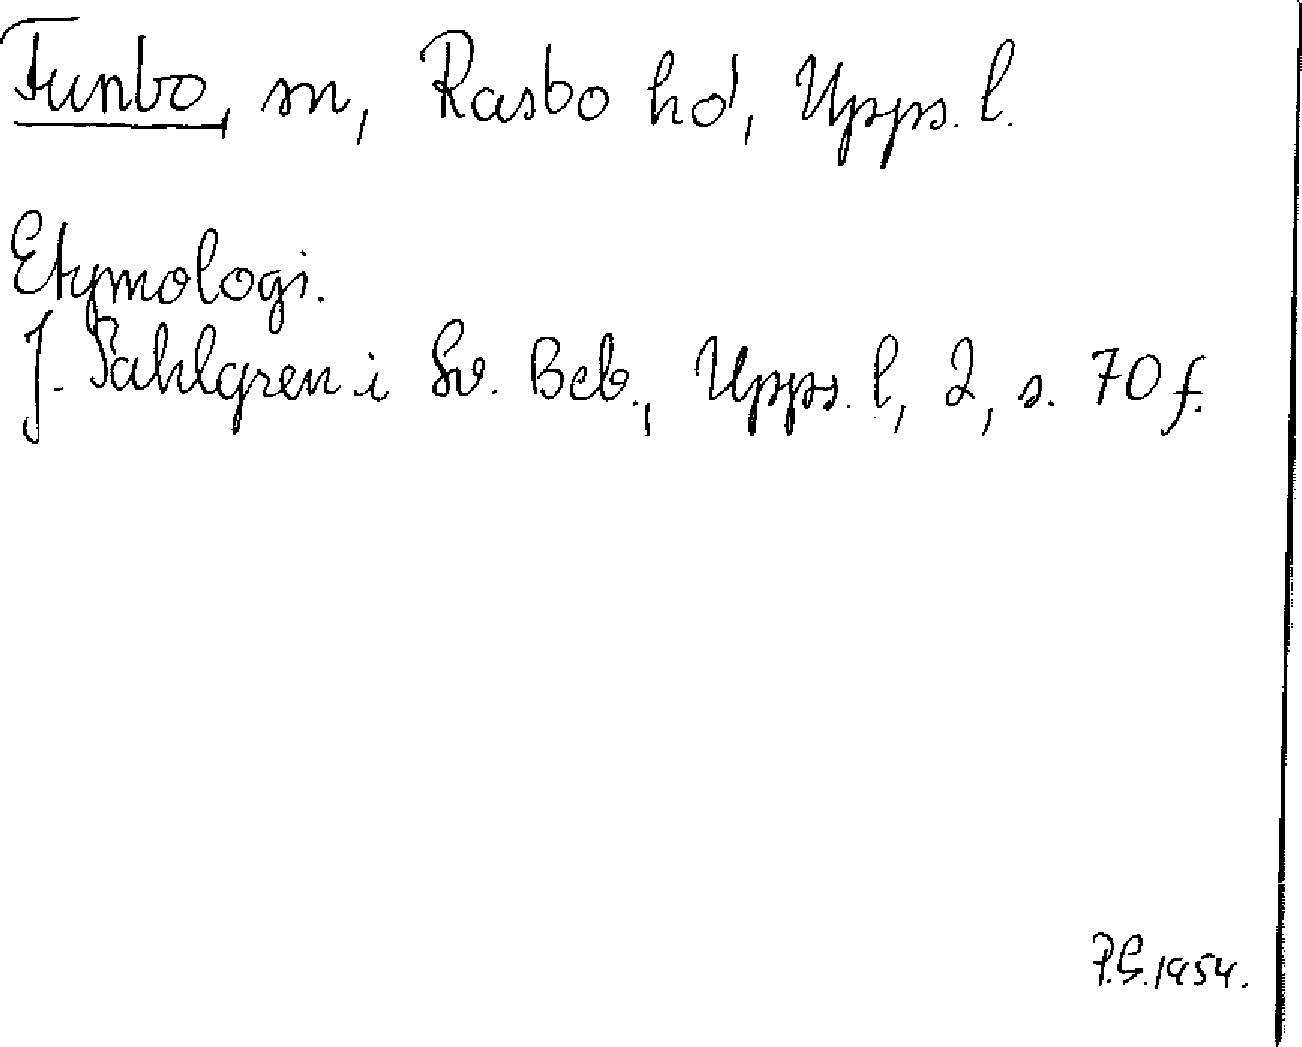 Funbo, sn, Rasbo hd, Upps. l.
Etymologi.
J. Sahlgren i Sv. Beb., Upps. l, 2, s. 70 f.
P.G. 1954.